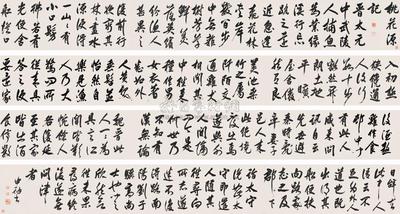 桃花源
記
晉太元
中武陵
人捕魚
為業緣
溪行忘
路之遠
近忽逢
桃花林
夾岸數
百步中
無雜樹
芳草鮮
美落英
繽紛漁
人甚異
之復前
行欲窮
其林
林盡水源
便得
一山山有
小口髣
髴若有
光便舍
船從口
入初極
狹纔通
人復行
數十步
豁然開
朗土地
平曠屋
舍儼然
有良田
美池桑
竹之屬
阡陌交
通雞犬
相聞其
中往來
種作男
女衣著
悉如外
人黃髮
垂髫並
怡然自
樂見漁
人乃大
驚問所
從來具
答之便
要還家
設酒殺
雞作食
村中聞
有此人
咸來問
訊自云
先世避
秦時亂
率妻子
邑人來
此絕境
不復出
焉遂與
外人間
隔問今
是何世乃
不知有
漢無論
魏晉此
人一一為
具言所
聞皆歎
惋餘人
各復延
至其家
皆出酒
食停數
日辭去
此中人
語云不
足為外人
道也既
出得其
船便扶
向路處
處誌之
及郡下
詣太守
說如此
太守即遣
人隨其
往尋向
所誌遂
迷不復
得路南
陽劉子驥
高尚士
也聞之
欣然規
往未果
尋病終
後遂無
問津者